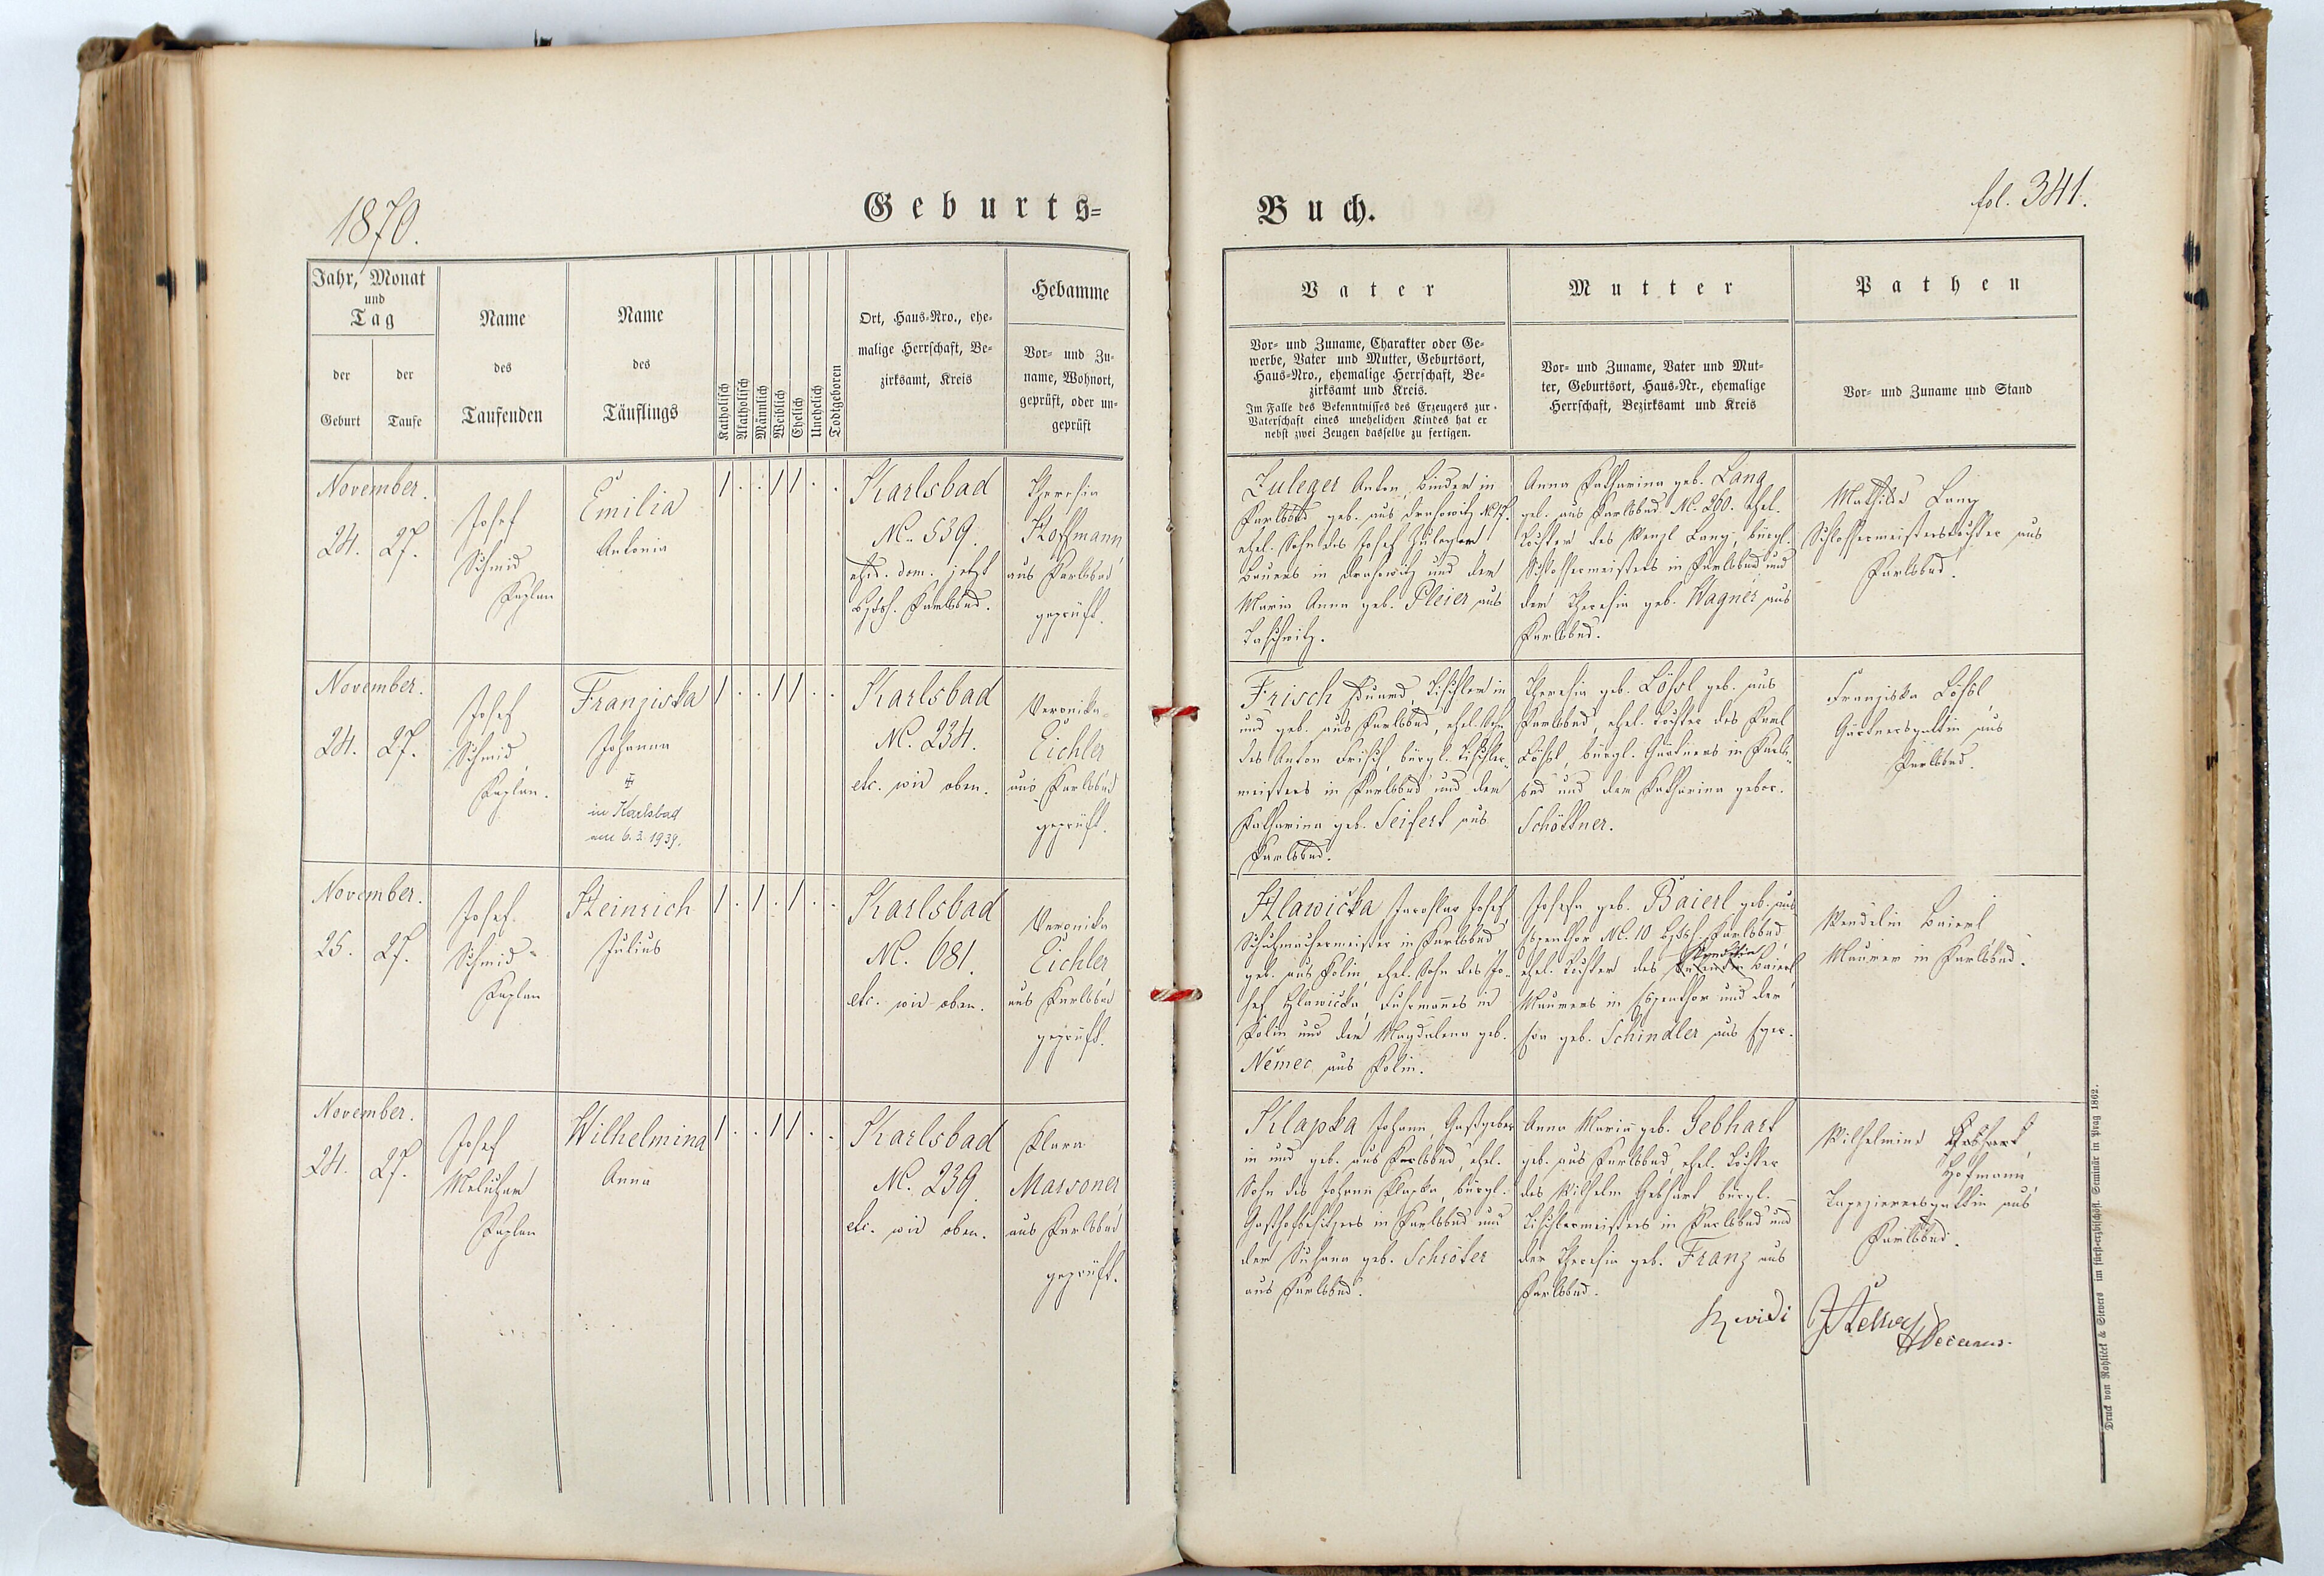 1870.
Geburts=
Jahr, Monat
und
Tag
der
Geburt
der
Taufe
Name
des
Taufenden
Name
des
Täuflings
Katholisch
Akatholisch
Männlich
Weiblich
Ehelich
Unehelich
Todtgeboren
Ort, Haus=Nro., ehe=
malige Herrschaft, Be=
zirksamt, Kreis
Hebamme
Vor= und Zu=
name, Wohnort,
geprüft, oder un=
geprüft
November.
24. 27.
Josef
Schmid
Kaplan
Emilia
Antonia
1 . . 1 1 . .
Karlsbad
N. 539.
ehed. dom. jetzt
Bzksh. Karlsbad.
Theresia
Hoffmann
aus Karlsbad
geprüft.
November.
24. 27.
Josef
Schmid
Kaplan.
Franziska
Johanna
in Karlsbad
am 6.3.1939.
1 . . 1 1 . .
Karlsbad
N. 234.
etc. wie oben.
Veronika
Eichler
aus Karlsbad
geprüft.
November.
25. 27.
Josef
Schmid
Kaplan
Heinrich
Julius
1 . 1 . 1 . .
Karlsbad
N. 681.
etc. wie oben.
Veronika
Eichler
aus Karlsbad
geprüft.
November.
24. 27.
Josef
Kaplan
Wilhelmina
Anna
1 . . 1 1 . .
Karlsbad
N. 239.
etc. wie oben.
Klara
Marsoner
aus Karlsbad
geprüft.
Buch.
fol. 341.
Vater
Vor= und Zuname, Charakter oder Ge=
werbe, Vater und Mutter, Geburtsort,
Haus=Nro., ehemalige Herrschaft, Be=
zirksamt und Kreis.
Im Falle des Bekenntnisses des Erzeugers zur
Vaterschaft eines unehelichen Kindes hat er
nebst zwei Zeugen dasselbe zu fertigen.
Mutter
Vor= und Zuname, Vater und Mut=
ter, Geburtsort, Haus=Nr., ehemalige
Herrschaft, Bezirksamt und Kreis
Pathen
Vor= und Zuname und Stand
Zuleger Anton, Binder in
Karlsbad geb. aus Drahowitz N. 17.
ehel. Sohn des Josef Zuleger
Bauers in Drahowitz und der
Maria Anna geb. Pleier aus
Taschwitz.
Anna Katharina geb. Lang
geb. aus Karlsbad N. 260. ehel.
Tochter des Wenzl Lang, bürgl.
Schlossermeisters in Karlsbad und
der Theresia geb. Wagner aus
Karlsbad.
Mathilde Lang
Schlossermeisterstochter aus
Karlsbad.
Frisch Eduard, Tischler in
und geb. aus Karlsbad, ehel. Sohn
des Anton Frisch, bürgl. Tischler=
meisters in Karlsbad und der
Katharina geb. Seifert aus
Karlsbad.
Theresia geb. Lößl geb. aus
Karlsbad, ehel. Tochter des Karl
Lößl, bürgl. Gärtners in Karls=
bad und der Katharina gebor.
Schöttner.
Franziska Lößl,
Gärtnersgattin aus
Karlsbad.
Hlawička Jaroslav Josef
Schuhmachermeister in Karlsbad
geb. aus Kolin, ehel. Sohn des Jo=
sef Hlawička, Fuhrmannes in
Kolin und der Magdalena geb.
Němec, aus Kolin.
Josefa geb. Baierl geb. aus
Espenthor N. 10 Bzksh. Karlsbad,
Wendelin
ehel. Tochter des Baierl,
Maurers in Espenthor und der
Eva geb. Schindler aus Eger.
Wendelin Baierl
Maurer in Karlsbad.
Klapka Johann, Gastgeber
in und geb. aus Karlsbad, ehel.
Sohn des Johann Klapka, bürgl.
Gasthofbesitzers in Karlsbad und
der Susanna geb. Schröter
aus Karlsbad.
Anna Maria geb. Gebhart
geb. aus Karlsbad, ehel. Tochter
des Wilhelm Gebhart bürgl.
Tischlermeisters in Karlsbad und
der Theresia geb. Franz aus
Karlsbad.
Wilhelmine Gebhart,
Hofmann,
Tapezierersgattin aus
Karlsbad.
vidi
Decanus.
Druck von Rohliček & Sievers im fürst=erzbischöfl. Seminär in Prag 1862.